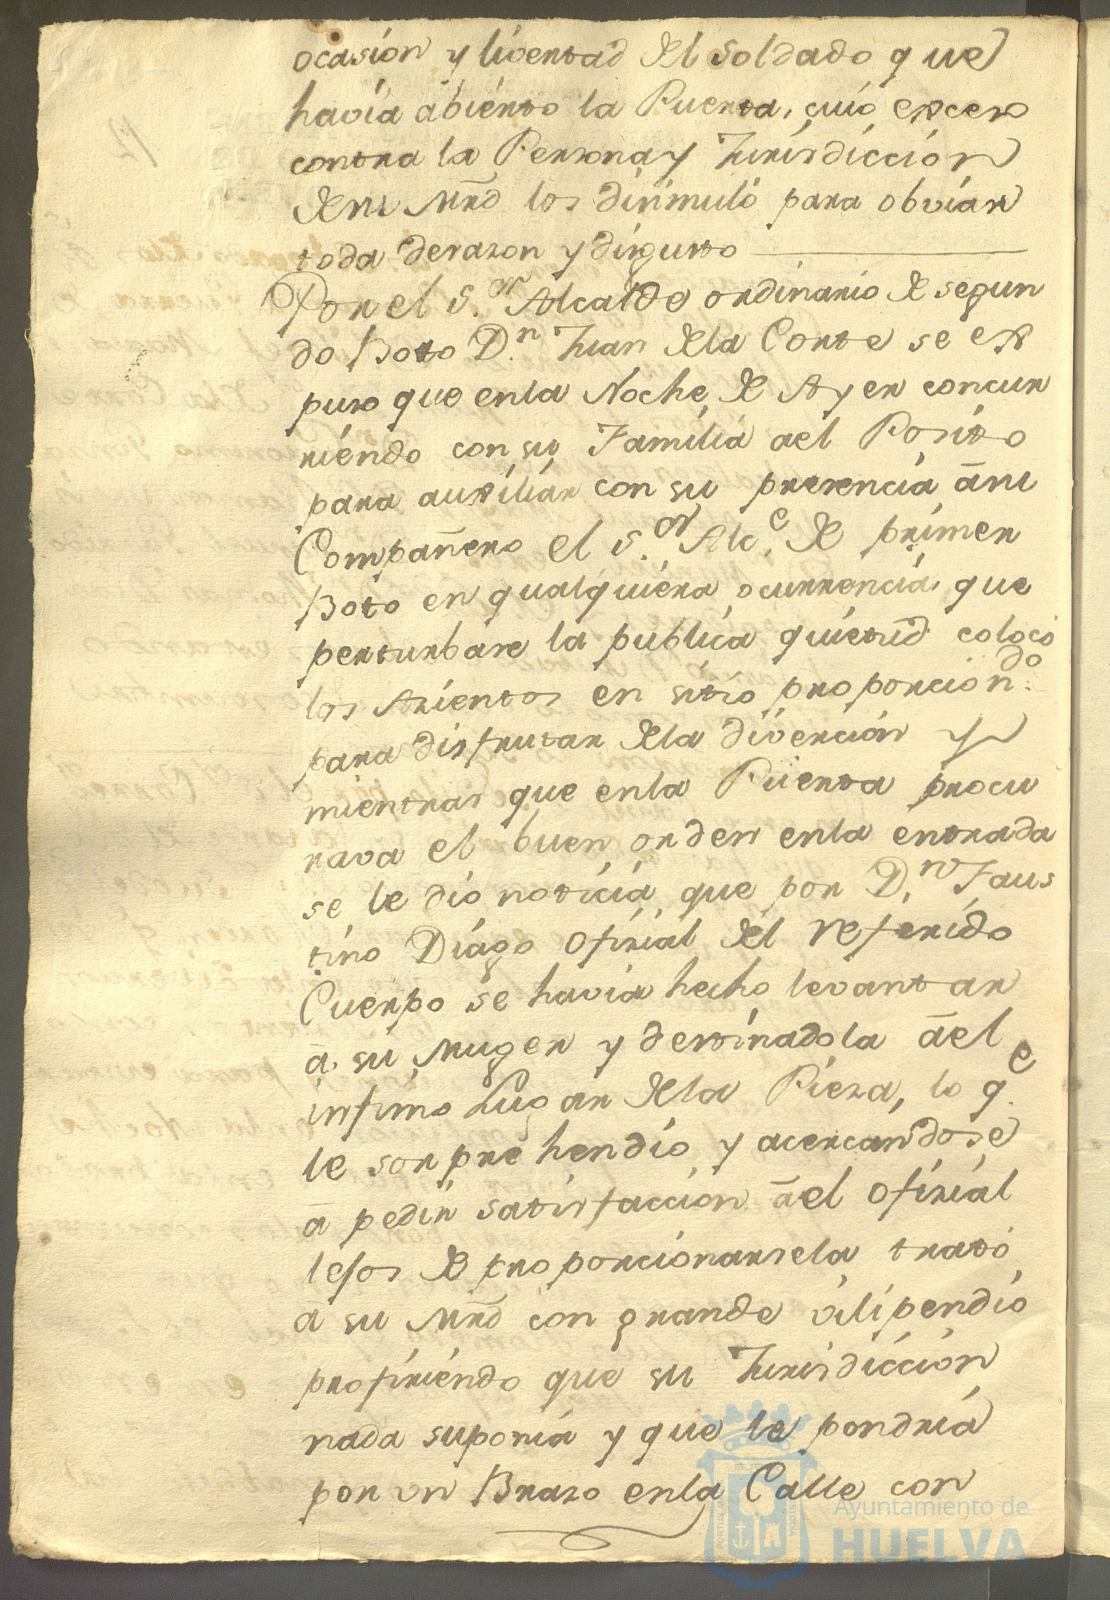 ocasion y livertad del soldado que
havia abierto la Puerta, cuio exceso
contra la Persona y Jurisdiccion
de su Mrd los disimuló para obviar
toda desazon y disgusto
Por el S.or Alcalde ordinario de segun
do Boto D.n Juan dela Corte se ex
puso que enla Noche de Ayer concur
riendo con su Familia ael Posito
para auxiliar con su presencia á su
Compañero el S.or Alc.e de primer
Boto en qualquiera ocurrencia que
perturbase la publica quietud colocó
los Asientos en sitio proporcion.do
para disfrutar dela diversion y
mientras que enla Puerta procu
rava el buen orden enla entrada
se le dio noticia que por D.n Faus
tino Diago Ofisial del referido
Cuerpo se havia hecho levantar
á su Muger y destinadola áel
infimo Lugar dela Pieza, lo q.e
le sorprehendio y acercandose
á pedir satisfaccion áel Ofisial
lejos de proporcionarsela trató
á su Mrd con grande vilipendio
profiriendo que su Jurisdiccion
nada suponia y que le pondria
por un Brazo enla Calle con
Ayuntamiento de
HUELVA